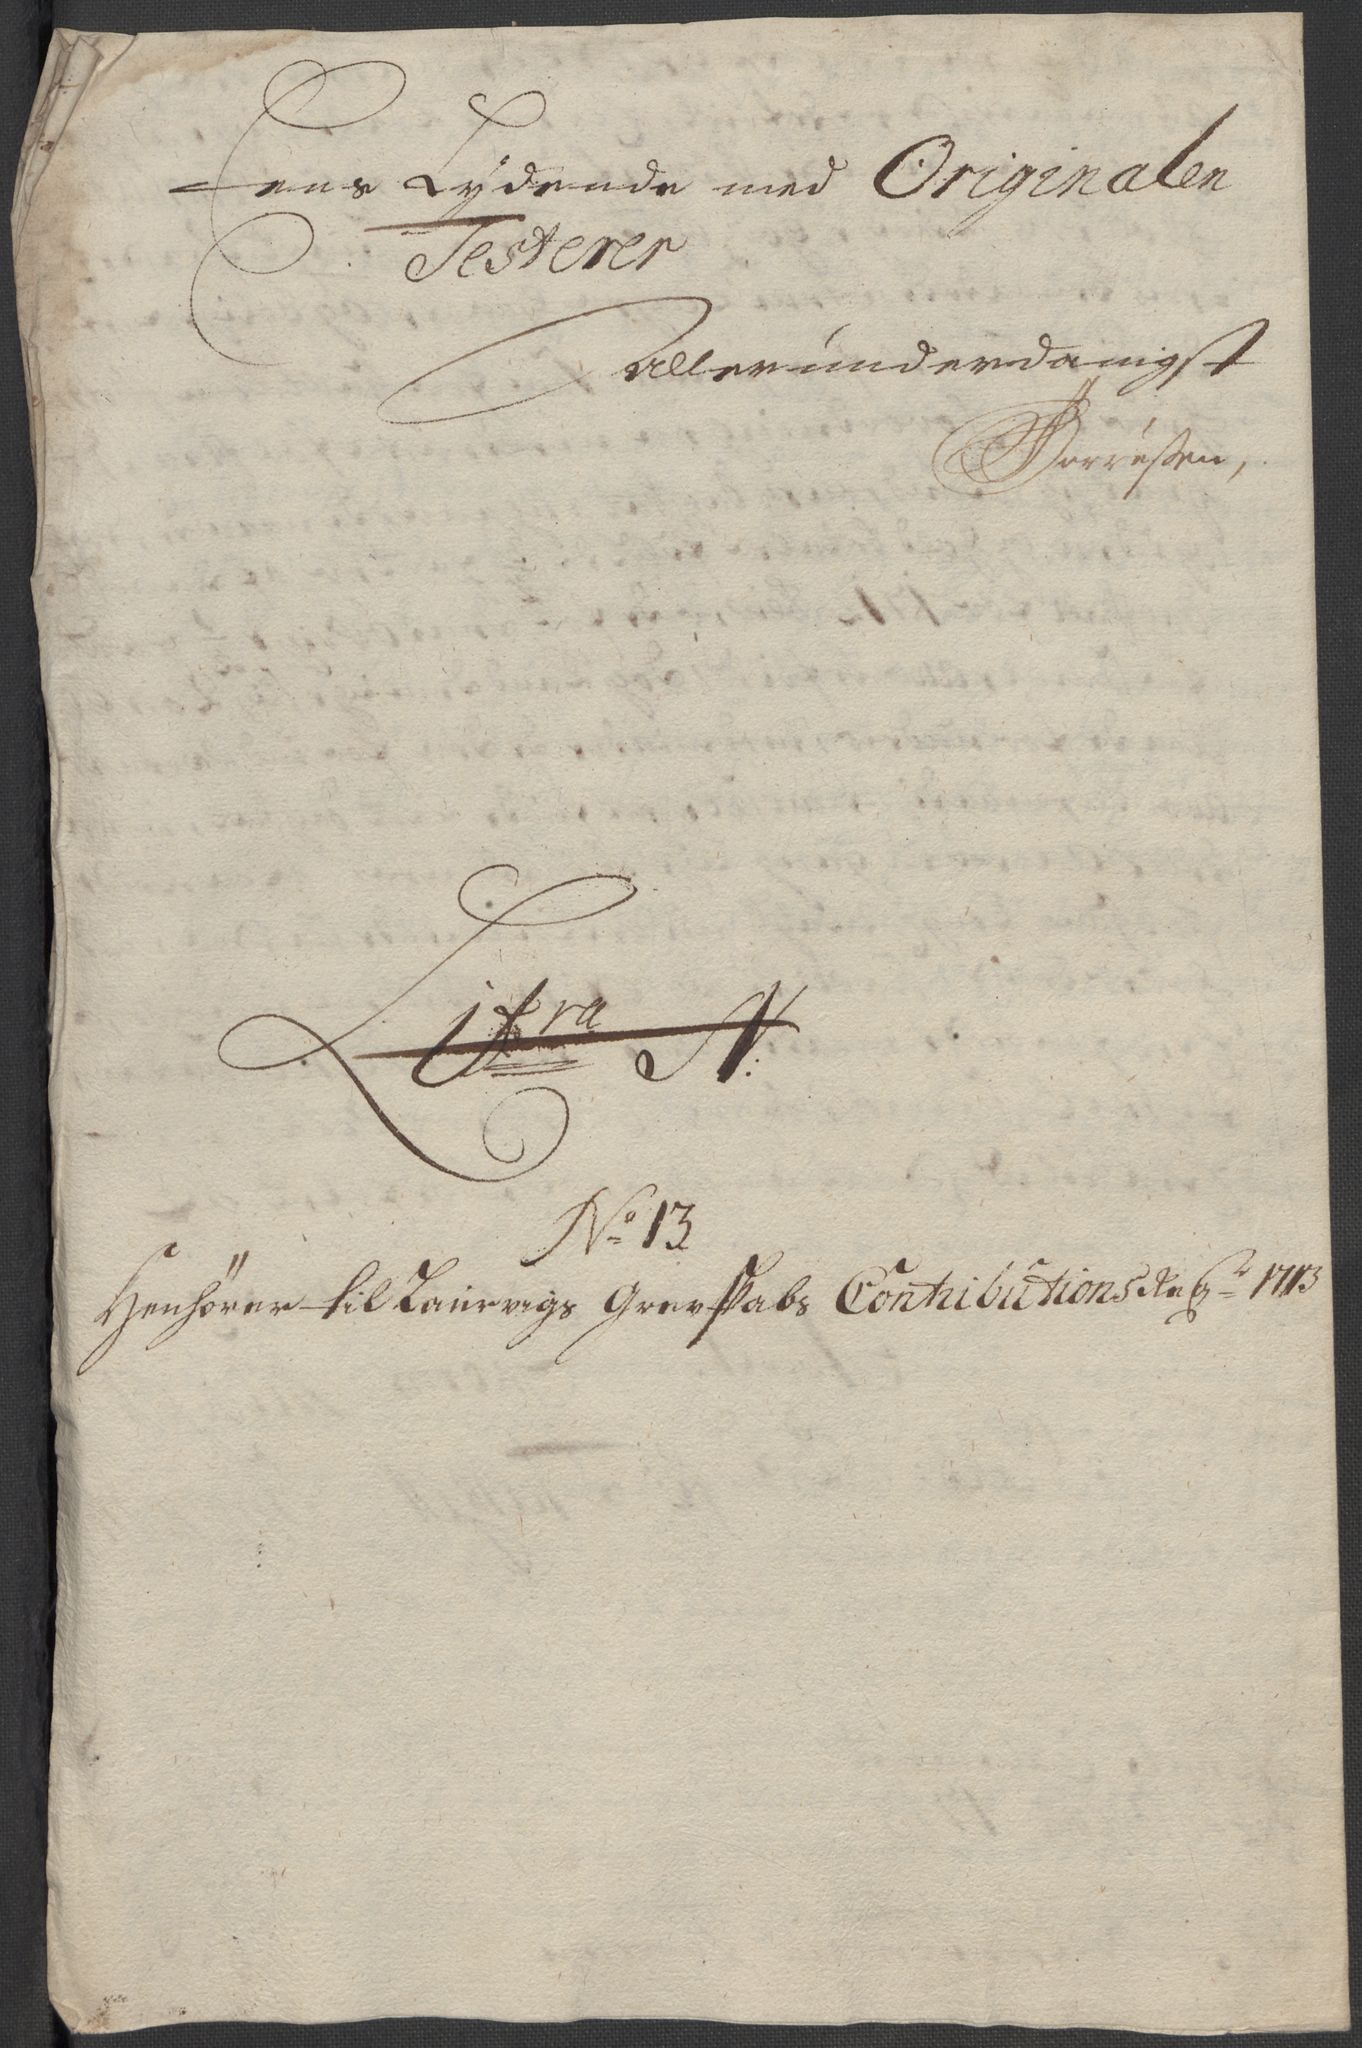 Eens Lydende med Originalen
Testerer
Allerunderdanigst
Litra N:
No 13
Henhörer til Laurvigs Grevskabs Contributions Regn 1713